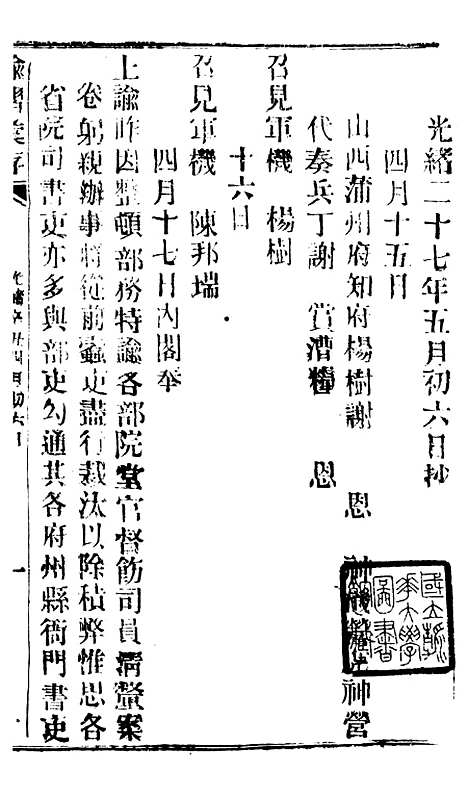 光緒二十七年五月初六日抄
四月十五日
山西蒲州府知府楊樹謝 恩 神 神營
代奏兵丁謝 賞漕糧 恩
召見軍機 楊樹
十六日
召見軍機 陳邦瑞
四月十七日內閣奉
上諭昨因整頓部務特諭各部院堂官督飭司員清釐案
卷躬親辦事將從前蠹吏盡行裁汰以除積弊惟思各
省院司書吏亦多與部吏勾通其各府州縣衙門書吏
諭摺彙存
一
國立 大學圖書